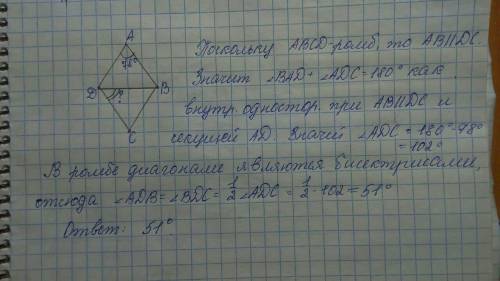 A
78°
D
?
B
C
Поскольку ABCD-ромб, то AB||DC.
Значит ∠BAD + ∠ADC = 180° как
внутр. одностор. при AB||DC и
секущей AD Значит ∠ADC = 180°-78°
= 102°
В ромбе диагонали являются бисектрисами,
отсюда ∠ADB = ∠BDC = 1/2 ∠ADC = 1/2 · 102 = 51°
Ответ: 51°